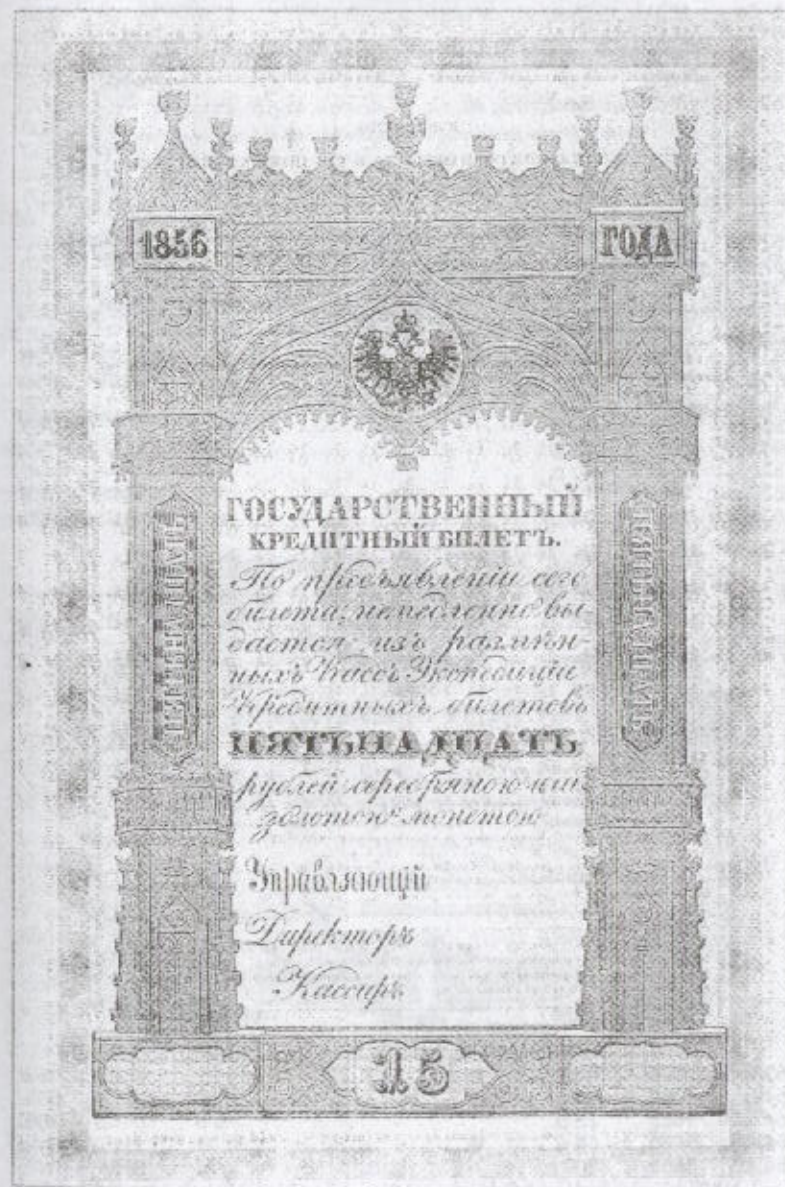 1856 ГОДА
ГОСУДАРСТВЕННЫЙ
КРЕДИТНЫЙ БИЛЕТЪ.
По предъявленіи сего
билета, немедленно вы-
дается изъ размѣн-
ныхъ Кассъ Экспедиціи
Кредитныхъ билетовъ
ПЯТЬНАДЦАТЬ
рублей серебряною или
золотою монетою
Управляющій
Директоръ
Кассиръ
ПЯТЬНАДЦАТЬ
ПЯТЬНАДЦАТЬ
15